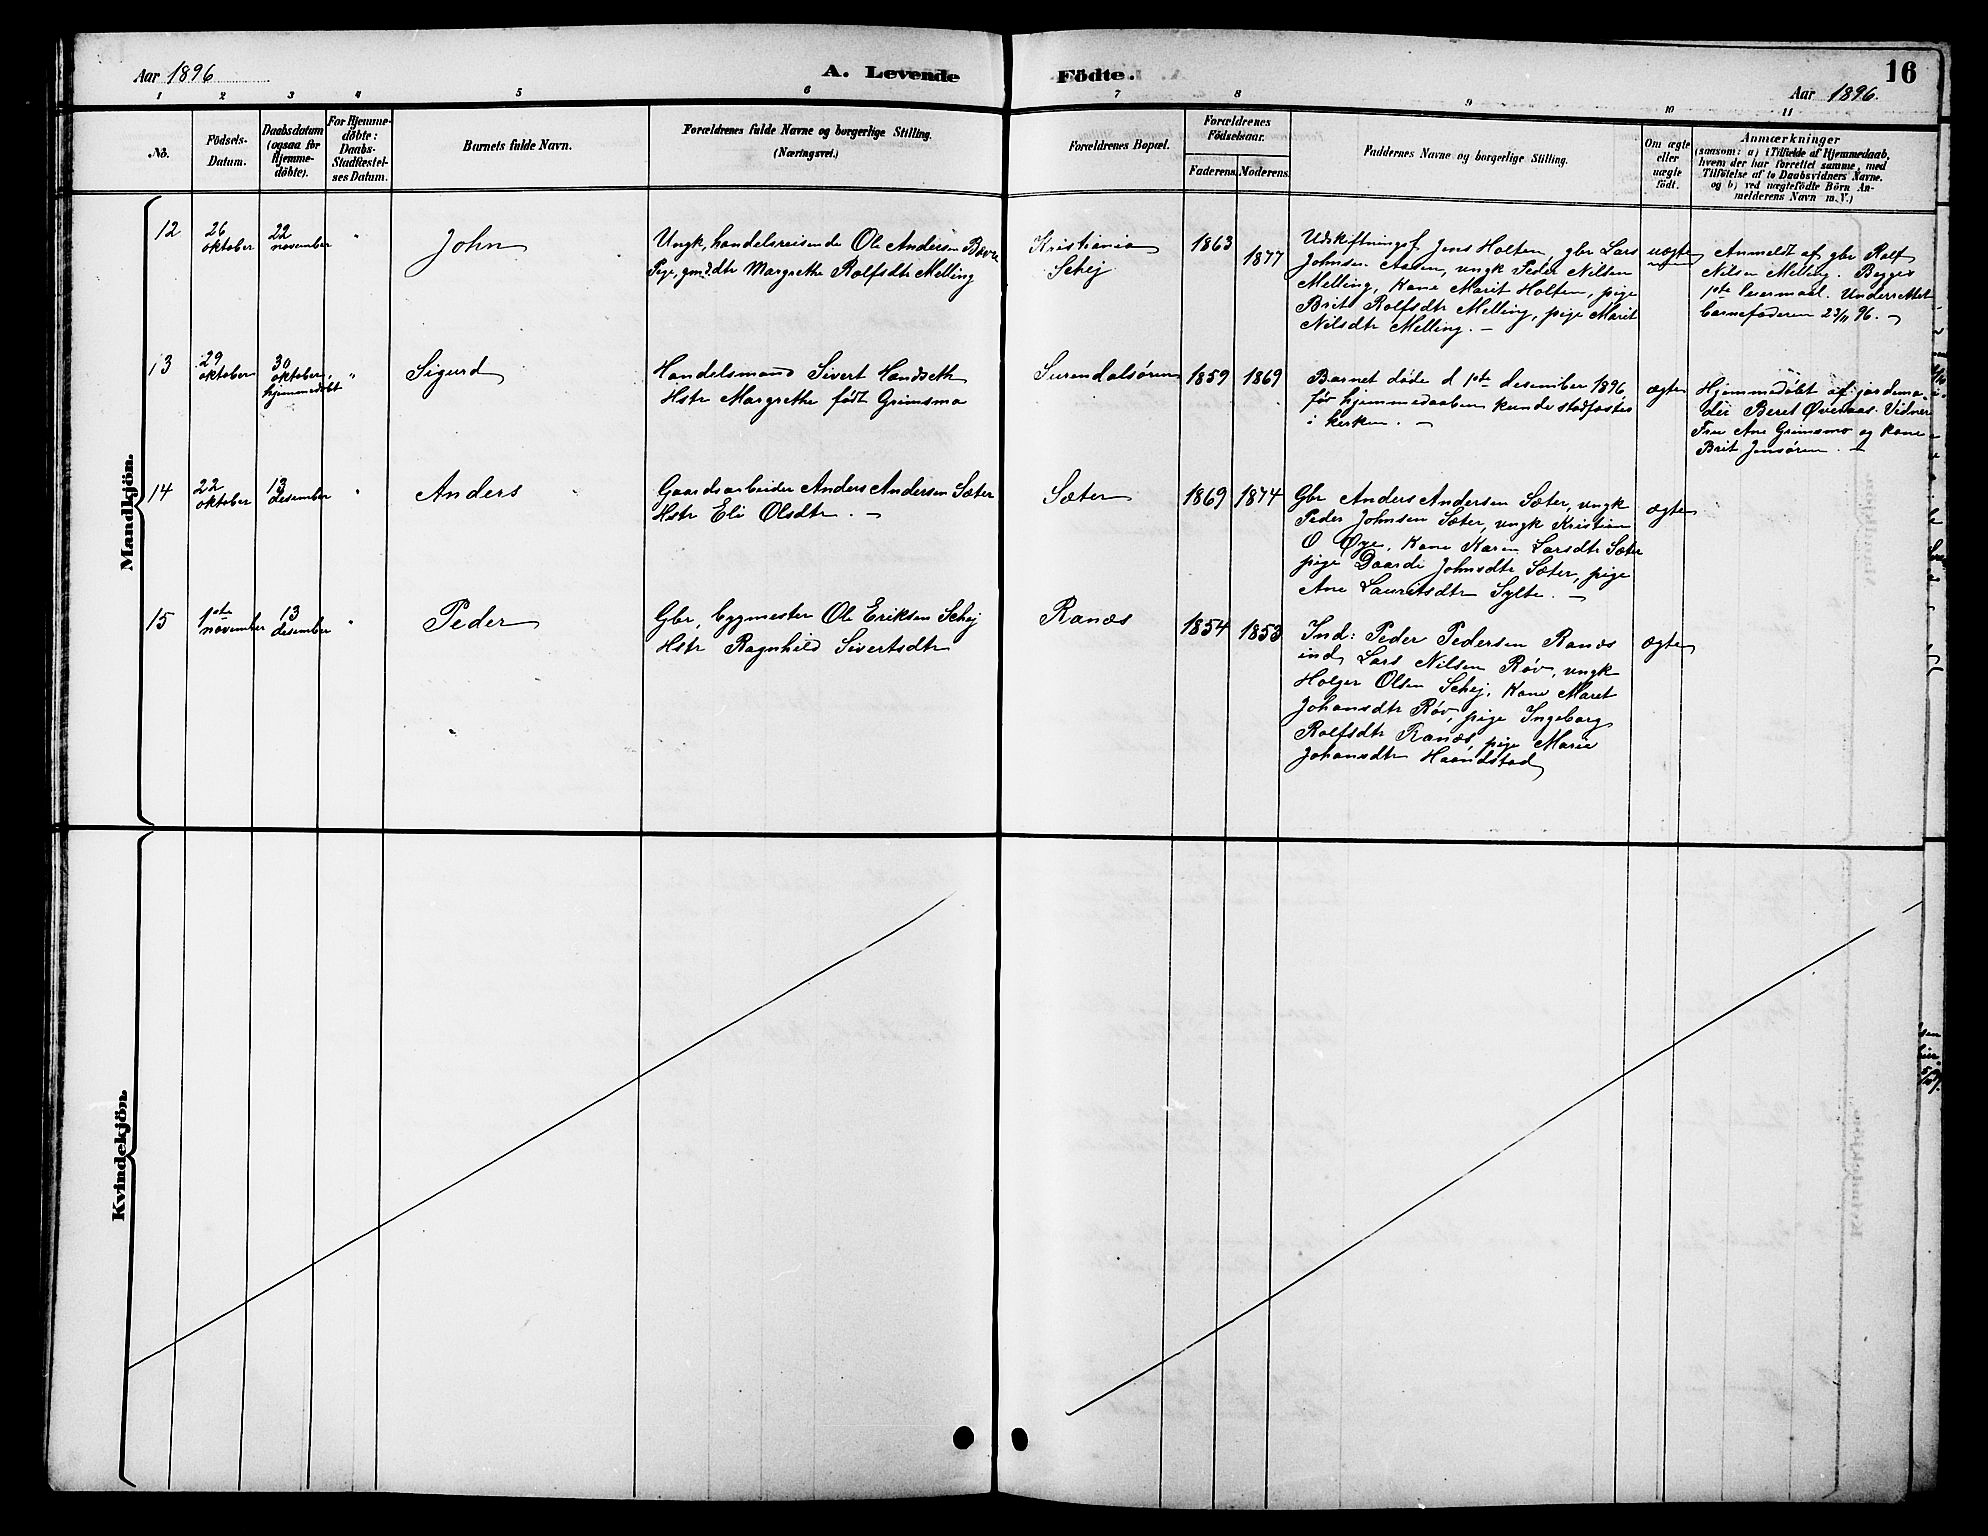 Aar 1896
A. Levende
Födte.
16
Aar 1896.
1 2 3 4 5 6 7 8 9 10 11
No.
Födsels-
Datum.
Daabsdatum
(ogsaa for
Hjemme-
döbte).
For Hjemme-
döbte:
Daabs-
Stadfæstel-
ses Datum.
Barnets fulde Navn.
Forældrenes fulde Navne og borgerlige Stilling.
(Næringsvei.)
Forældrenes Bopæl.
Forældrenes
Födselsaar.
Faderens. Moderens.
Faddernes Navne og borgerlige Stilling.
Om ægte
eller
uægte
födt.
Anmærkninger
(saasom: a) i Tilfælde af Hjemmedaab,
hvem der har forrettet samme, med
Tilföielse af to Daabsvidners Navne.
og b) ved uægtefödte Börn An-
melderens Navn m. V.)
Mandkjön.
12
26
oktober
22
november
"
John
Ungk, handelsreisende Ole Andersen Bævre
Pige, gmd.dtr Margrethe Rolfsdtr Melling
Kristiania
Schej
1863
1877
Udskiftningsf. Jens Holten, gbr Lars
Johnsen Aasen, ungk Peder Nilsen
Melling, Kone Marit Holten, pige
Brit Rolfsdtr Melling, pige Marit
Nilsdtr Melling. —
uægte
Anmeldt af gbr Rolf
Nilsen Melling. Begges
1ste leiermaal. Underrettet
barnefaderen 23/11 96. —
13
29
oktober
30
oktober,
hjemmedøbt
"
Sigurd
Handelsmand Sivert Handseth
Hstr Margrethe født Grimsmo
Surendalsøren
1859
1869
Barnet døde d 1ste desember 1896
før hjemmedaaben kunde stadfæstes
i kirken. —
ægte
Hjemmedøbt af jordemo-
der Beret Øveraas. Vidner
Fru Ane Grimsmo og kone
Brit Jensøren. —
14
22
oktober
13
desember
"
Anders
Gaardsarbeider Anders Andersen Sæter
Hstr Eli Olsdtr. —
Sæter
1869
1874
Gbr Anders Andersen Sæter, ungk
Peder Johnsen Sæter, ungk Kristian
O Øye, Kone Karen Larsdtr Sæter
pige Daarde Johnsdtr Sæter, pige
Ane Lauritsdtr Sylte. —
ægte
15
1ste
november
13
desember
"
Peder
Gbr, bygmester Ole Eriksen Schej
Hstr Ragnhild Sivertsdtr
Ranæs
1854
1853
Ind: Peder Pedersen Ranæs
ind Lars Nilsen Røv, ungk
Holger Olsen Schej, Kone Maret
Johansdtr Røv, pige Ingeborg
Rolfsdtr Ranæs, pige Marie
Johansdtr Haandstad
ægte
Kvindekjön.